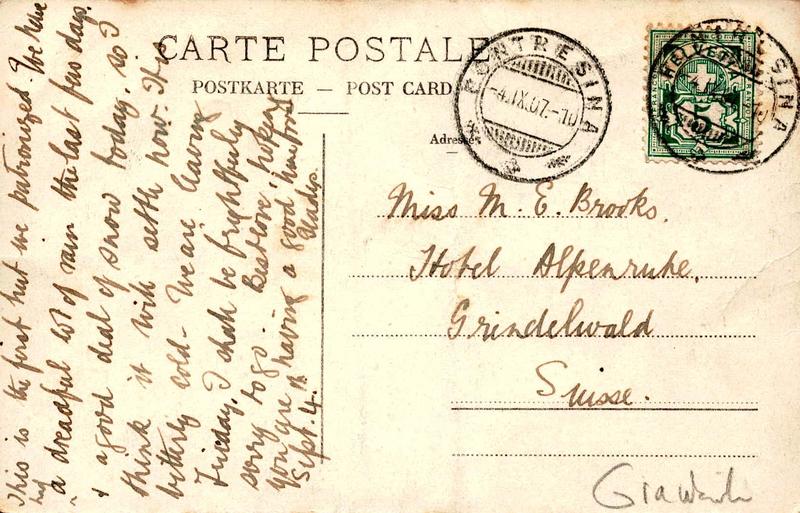 CARTE POSTALE
POSTKARTE — POST CARD
Adresse
PONTRESINA
-4.IX.07.-10
HELVETIA
5
Miss M. E. Brooks.
Hotel Alpenruhe.
Grindelwald
Suisse.
This is the first hut we patronized. We have
had
a dreadful lot of rain the last few days.
& a good deal of snow today, so I
think it will settle now. It is
bitterly cold - We are leaving
Tuesday, I shall be frightfully
sorry to go. Best love, hoping
you are having a good time from
Sept. 4. Gladys.